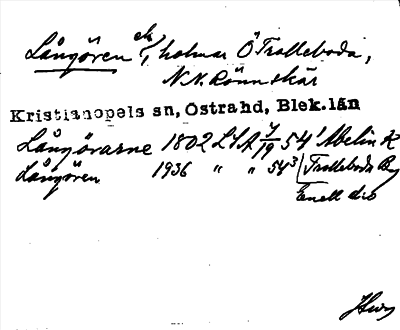 Långören ek/, holmar Ö Trolleboda,
N.N. Rönnskär
Kristianopels sn, Östra hd, Blek. län
Långörarne 1802 LSA 7/19 54¹ Abelin K
Långören 1936 " " 54³ Trolleboda By
Enell dio